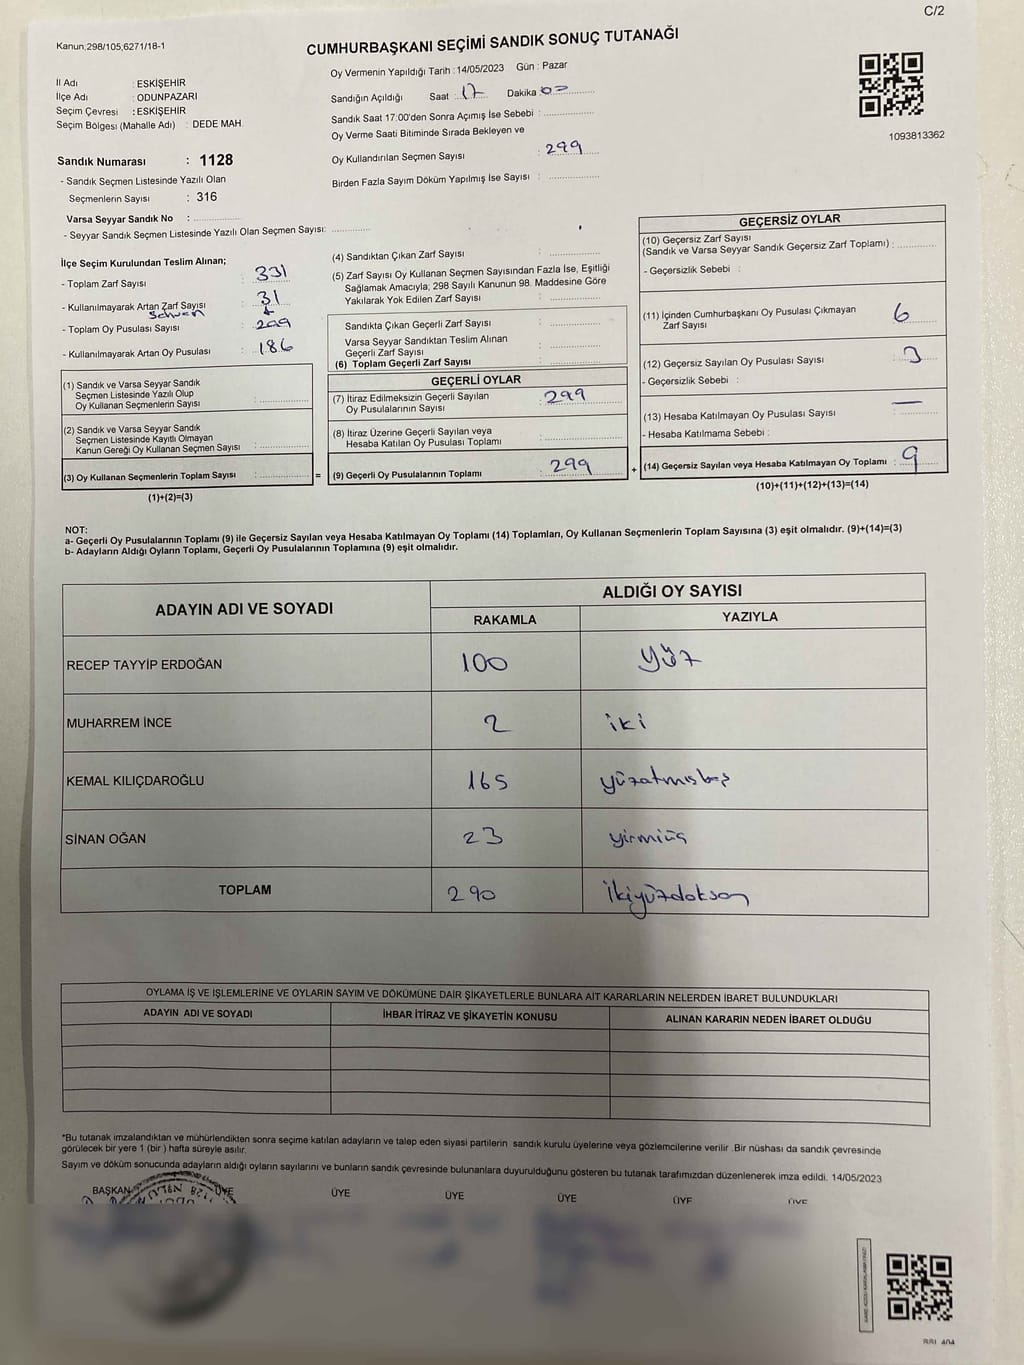 C/2
Kanun;298/105;6271/18-1
CUMHURBAŞKANI SEÇİMİ SANDIK SONUÇ TUTANAĞI
İl Adı : ESKİŞEHİR
İlçe Adı : ODUNPAZARI
Seçim Çevresi : ESKİŞEHİR
Seçim Bölgesi (Mahalle Adı) : DEDE MAH.
Sandık Numarası : 1128
- Sandık Seçmen Listesinde Yazılı Olan
Seçmenlerin Sayısı : 316
Varsa Seyyar Sandık No :
- Seyyar Sandık Seçmen Listesinde Yazılı Olan Seçmen Sayısı:
Oy Vermenin Yapıldığı Tarih : 14/05/2023 Gün : Pazar
Sandığın Açıldığı Saat : 17 Dakika : 00
Sandık Saat 17:00'den Sonra Açımış İse Sebebi :
Oy Verme Saati Bitiminde Sırada Bekleyen ve
Oy Kullandırılan Seçmen Sayısı : 299
Birden Fazla Sayım Döküm Yapılmış İse Sayısı :
1093813362
İlçe Seçim Kurulundan Teslim Alınan;
- Toplam Zarf Sayısı : 331
- Kullanılmayarak Artan Zarf Sayısı : 31
- Toplam Oy Pusulası Sayısı : 299
- Kullanılmayarak Artan Oy Pusulası : 186
(1) Sandık ve Varsa Seyyar Sandık
Seçmen Listesinde Yazılı Olup
Oy Kullanan Seçmenlerin Sayısı :
(2) Sandık ve Varsa Seyyar Sandık
Seçmen Listesinde Kayıtlı Olmayan
Kanun Gereği Oy Kullanan Seçmen Sayısı :
(3) Oy Kullanan Seçmenlerin Toplam Sayısı : =
(1)+(2)=(3)
(4) Sandıktan Çıkan Zarf Sayısı :
(5) Zarf Sayısı Oy Kullanan Seçmen Sayısından Fazla İse, Eşitliği
Sağlamak Amacıyla; 298 Sayılı Kanunun 98. Maddesine Göre
Yakılarak Yok Edilen Zarf Sayısı :
Sandıkta Çıkan Geçerli Zarf Sayısı :
Varsa Seyyar Sandıktan Teslim Alınan
Geçerli Zarf Sayısı :
(6) Toplam Geçerli Zarf Sayısı :
GEÇERLİ OYLAR
(7) İtiraz Edilmeksizin Geçerli Sayılan
Oy Pusulalarının Sayısı : 299
(8) İtiraz Üzerine Geçerli Sayılan veya
Hesaba Katılan Oy Pusulası Toplamı :
(9) Geçerli Oy Pusulalarının Toplamı : 299 +
GEÇERSİZ OYLAR
(10) Geçersiz Zarf Sayısı
(Sandık ve Varsa Seyyar Sandık Geçersiz Zarf Toplamı) :
- Geçersizlik Sebebi :
(11) İçinden Cumhurbaşkanı Oy Pusulası Çıkmayan
Zarf Sayısı : 6
(12) Geçersiz Sayılan Oy Pusulası Sayısı : 3
- Geçersizlik Sebebi :
(13) Hesaba Katılmayan Oy Pusulası Sayısı : —
- Hesaba Katılmama Sebebi :
(14) Geçersiz Sayılan veya Hesaba Katılmayan Oy Toplamı : 9
(10)+(11)+(12)+(13)=(14)
NOT:
a- Geçerli Oy Pusulalarının Toplamı (9) ile Geçersiz Sayılan veya Hesaba Katılmayan Oy Toplamı (14) Toplamları, Oy Kullanan Seçmenlerin Toplam Sayısına (3) eşit olmalıdır. (9)+(14)=(3)
b- Adayların Aldığı Oyların Toplamı, Geçerli Oy Pusulalarının Toplamına (9) eşit olmalıdır.
ADAYIN ADI VE SOYADI ALDIĞI OY SAYISI
RAKAMLA YAZIYLA
RECEP TAYYİP ERDOĞAN 100 yüz
MUHARREM İNCE 2 iki
KEMAL KILIÇDAROĞLU 165 yüzatmışbeş
SİNAN OĞAN 23 yirmiüç
TOPLAM 290 İkiyüzdoksan
OYLAMA İŞ VE İŞLEMLERİNE VE OYLARIN SAYIM VE DÖKÜMÜNE DAİR ŞİKAYETLERLE BUNLARA AİT KARARLARIN NELERDEN İBARET BULUNDUKLARI
ADAYIN ADI VE SOYADI İHBAR İTİRAZ VE ŞİKAYETİN KONUSU ALINAN KARARIN NEDEN İBARET OLDUĞU
*Bu tutanak imzalandıktan ve mühürlendikten sonra seçime katılan adayların ve talep eden siyasi partilerin sandık kurulu üyelerine veya gözlemcilerine verilir. Bir nüshası da sandık çevresinde
görülecek bir yere 1 (bir) hafta süreyle asılır.
Sayım ve döküm sonucunda adayların aldığı oyların sayılarını ve bunların sandık çevresinde bulunanlara duyurulduğunu gösteren bu tutanak tarafımızdan düzenlenerek imza edildi. 14/05/2023
BAŞKAN ÜYE ÜYE ÜYE ÜYE ÜYE ÜYE